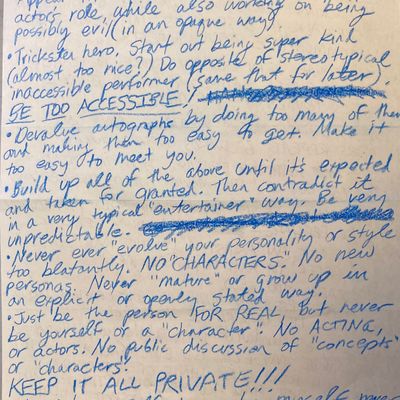 actors role, while also working on being
possibly evil (in an opaque way).
• Trickster hero. Start out being super kind
(almost too nice?) Do opposite of stereotypical
inaccessible performer (save that for later).
BE TOO ACCESSIBLE!
• Devalue autographs by doing too many of them
and making them too easy to get. Make it
too easy to meet you.
• Build up all of the above until it's expected
and taken for granted. Then contradict it
in a very typical "entertainer" way. Be very
unpredictable.
• Never ever "evolve" your personality or style
too blatantly. NO "CHARACTERS." No new
personas. Never "mature" or grow up in
an explicit or openly stated way.
• Just be the person FOR REAL, but never
be yourself or a "character". No ACTING,
or actors. No public discussion of "concepts"
or "characters".
KEEP IT ALL PRIVATE!!!